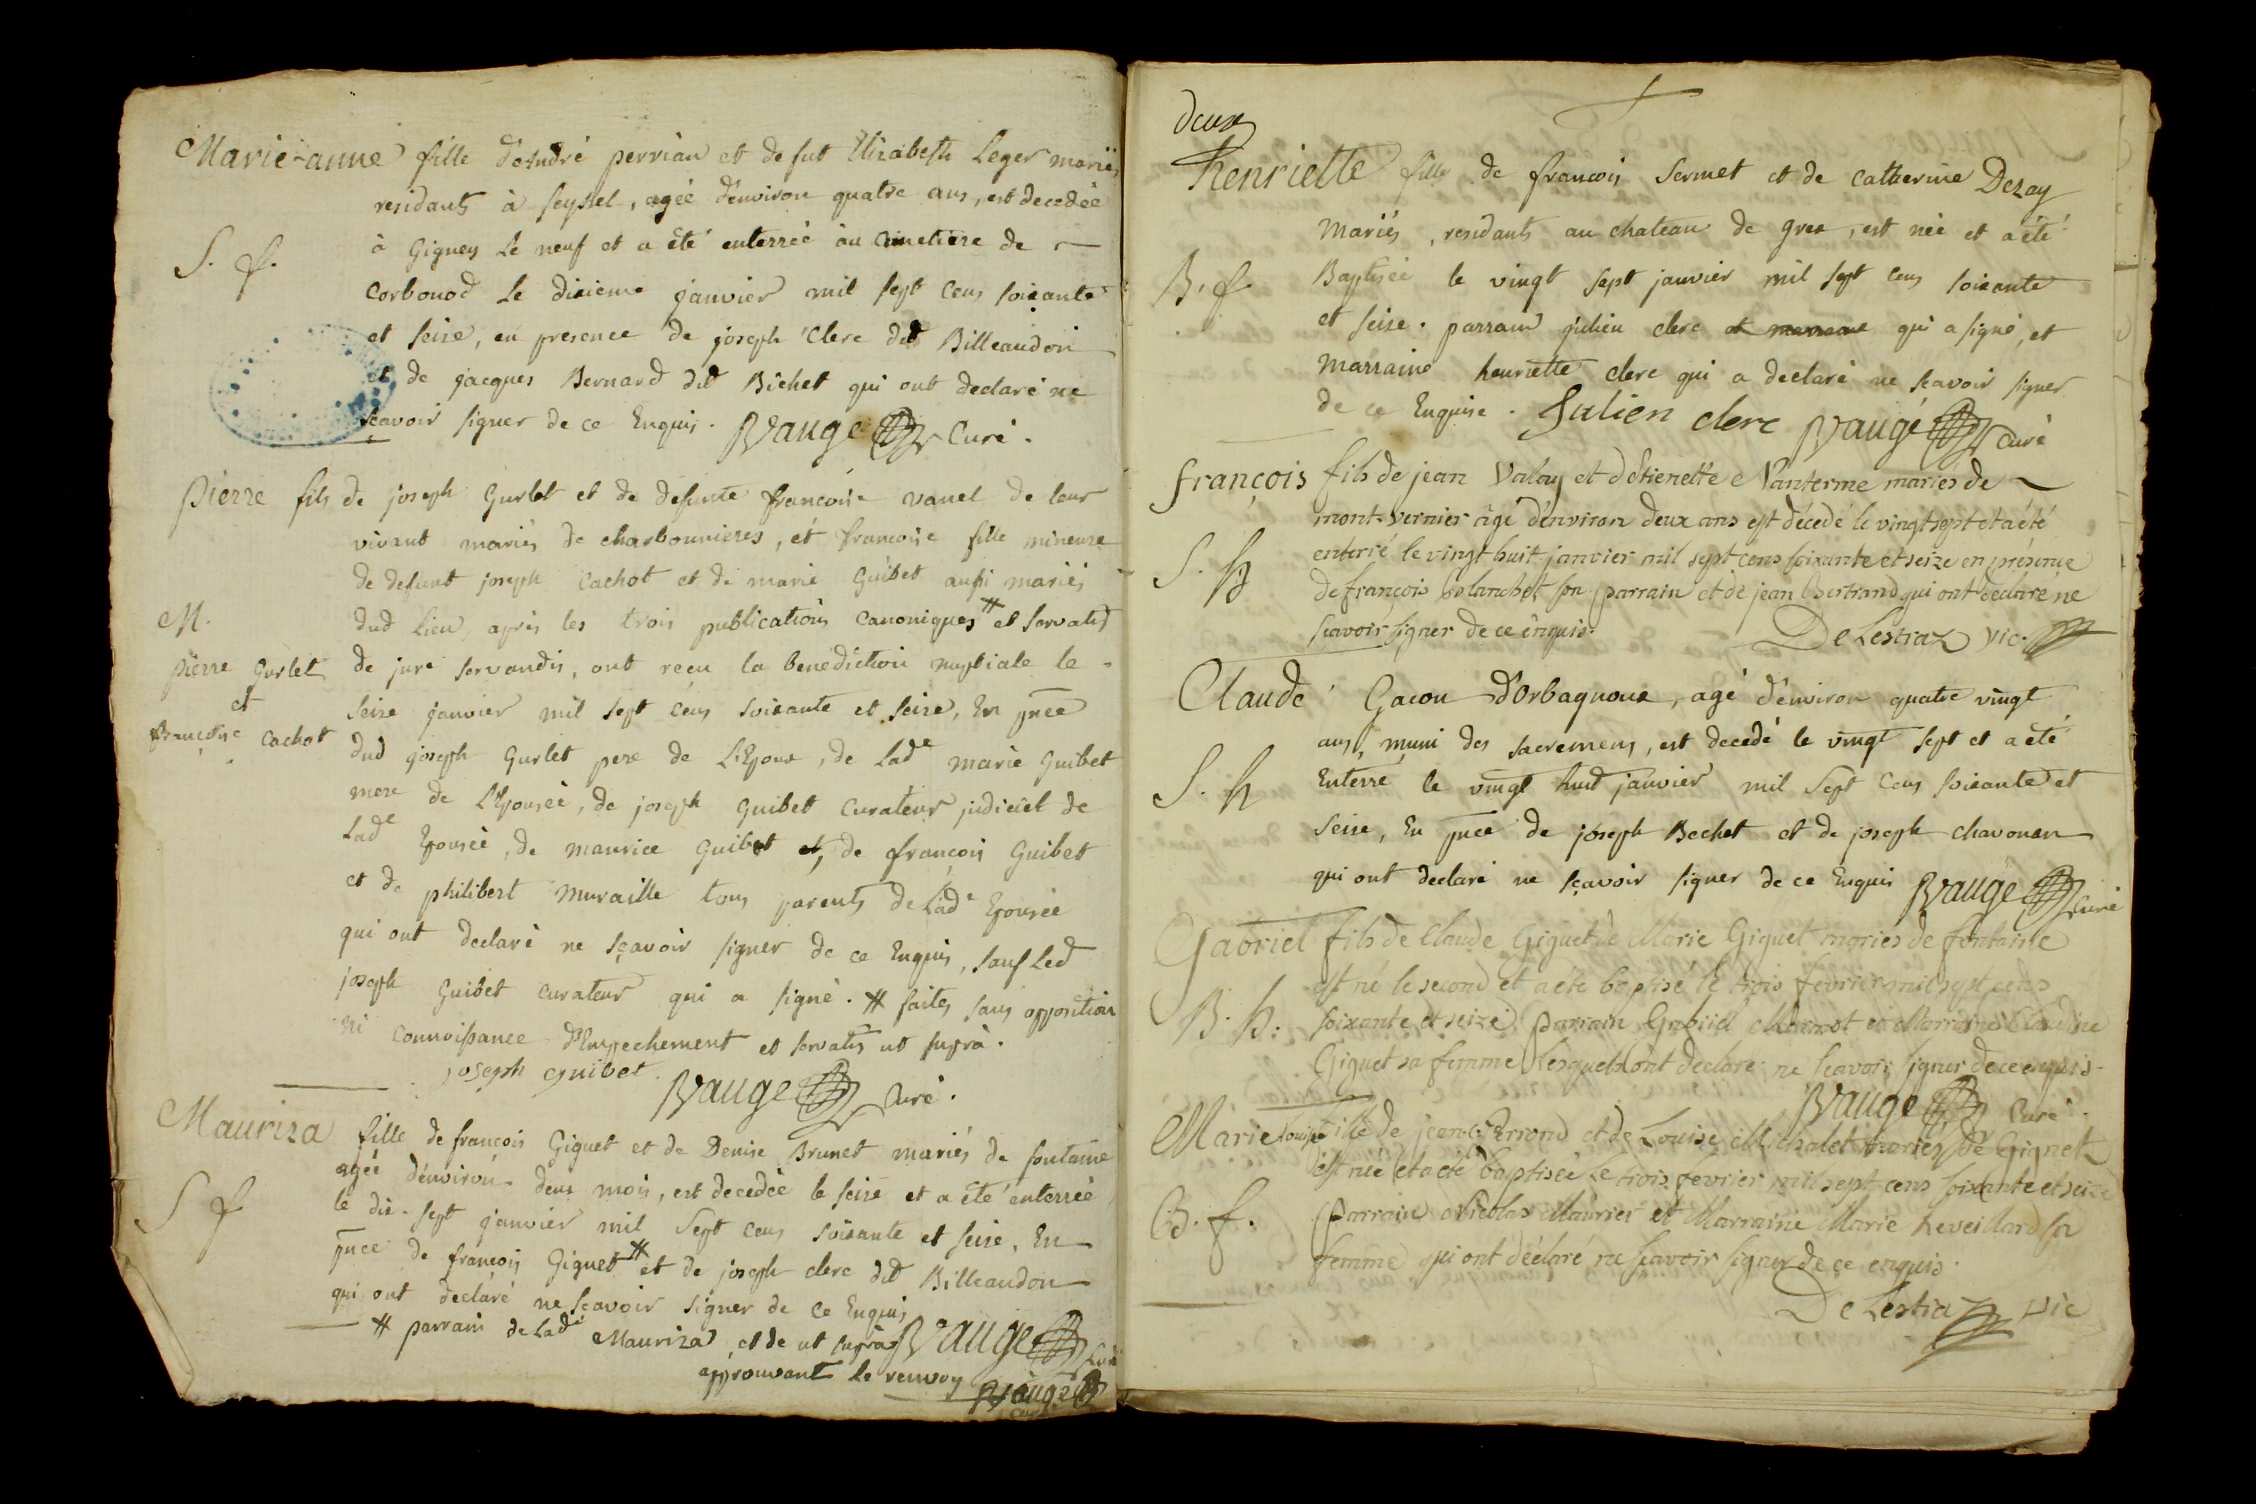 Marie-anne fille d'andré perrian et de fut Elizabeth Leger mariés
residants à seyssel, agée d'environ quatre ans, est decedée
à Gigney Le neuf et a été enterrée au cimetiere de
S. f.
Corbonod Le dixieme janvier mil sept cens soixante
et seize, en presence de joseph Clerc dit Billeaudon
et de jacques Bernard dit Bichet qui ont declaré ne
sçavoir signer de ce Enquis. Vauge Curé.
Pierre fils de joseph Gurlet et de defunte françoise vanel de leur
vivant mariés de charbonnieres, et francoise fille mineure
de defunt joseph Cachot et de marie Guibet aussi mariés
M.
pierre Gurlet
et
françoise Cachot
dud lieu, après les trois publications Canoniques # et servatis
de jure servandis, ont reçu la benediction nuptiale le
seize janvier mil sept cens soixante et seize, En pnce
dud joseph Gurlet pere de L'Epoux, de Lade marie Guibet
mere de L'Epousée, de joseph Guibet Curateur judiciel de
Lade Epousée, de maurice Guibet et, de françois Guibet
et de philibert Muraille tous parents de Lade Epousée
qui ont declaré ne sçavoir signer de ce Enquis, sauf Led
joseph Guibet Curateur qui a signé. # faites sans opposition
ni connoissance d'Empechement et servatis ut suprà.
joseph guibet Vauge Curé.
Mauriza fille de françois Giguet et de Denise Brunet mariés de fontaine
agée d'environ deux mois, est decedée le seize et a été enterrée
S f
le dix-sept janvier mil sept cens soixante et seize, En
pnce de françois Giguet # et de joseph clerc dit Billeaudon
qui ont declaré ne sçavoir signer de ce Enquis
# parrain de Lade Mauriza et de ut suprà Vauge Curé
approuvant le renvoy Vauge

deux
henriette fille de françois Sermet et de Catherine Dezay
Mariés, residants au chateau de grex, est née et a été
B. f.
Baptisée le vingt sept janvier mil sept cens soixante
et seize. parrain julien clerc et marraine qui a signé, et
Marraine henriette clerc qui a declaré ne sçavoir signer
de ce Enquise. Julien clerc Vaugé Curé
françois fils de jean Valay et d'Etienette Vanterme mariés de
mont-vernier agé d'environ deux ans est décedé le vingtsept et a été
S. h
enterré le vingt huit janvier mil sept cens soixante et seize en présence
de françois blanchet son parrain et de jean bertrand qui ont declaré ne
scavoir signer de ce enquis. De Lestraz vic.
Claude Gacon d'Orbagnoux, agé d'environ quatre vingt
ans, muni des sacremens, est decedé le vingt sept et a été
S. h
Enterré le vingt huit janvier mil sept cens soixante et
seize, En pnce de joseph Bechet et de joseph chavonen
qui ont declaré ne sçavoir signer de ce Enquis Vauge Curé
Gabriel fils de Claude Giguet de Marie Giguet mariés de fontaine
est né le second et a été baptisé le trois fevrier mil sept cens
B. h:
soixante et seize parrain Gabriel et Marraine Claudine
Giguet sa femme lesquels ont declaré ne scavoir signer de ce enquis.
Vauge Curé.
Marie louise fille de jean et de Louise Michalet mariés de Gignez
est née et a été baptisée Le trois fevrier mil sept cens soixante et seize
B. f.
Parrain Nicolas Maurier et Marraine Marie Reveillard sa
femme qui ont déclaré ne scavoir signer de ce enquis.
De Lestraz vic